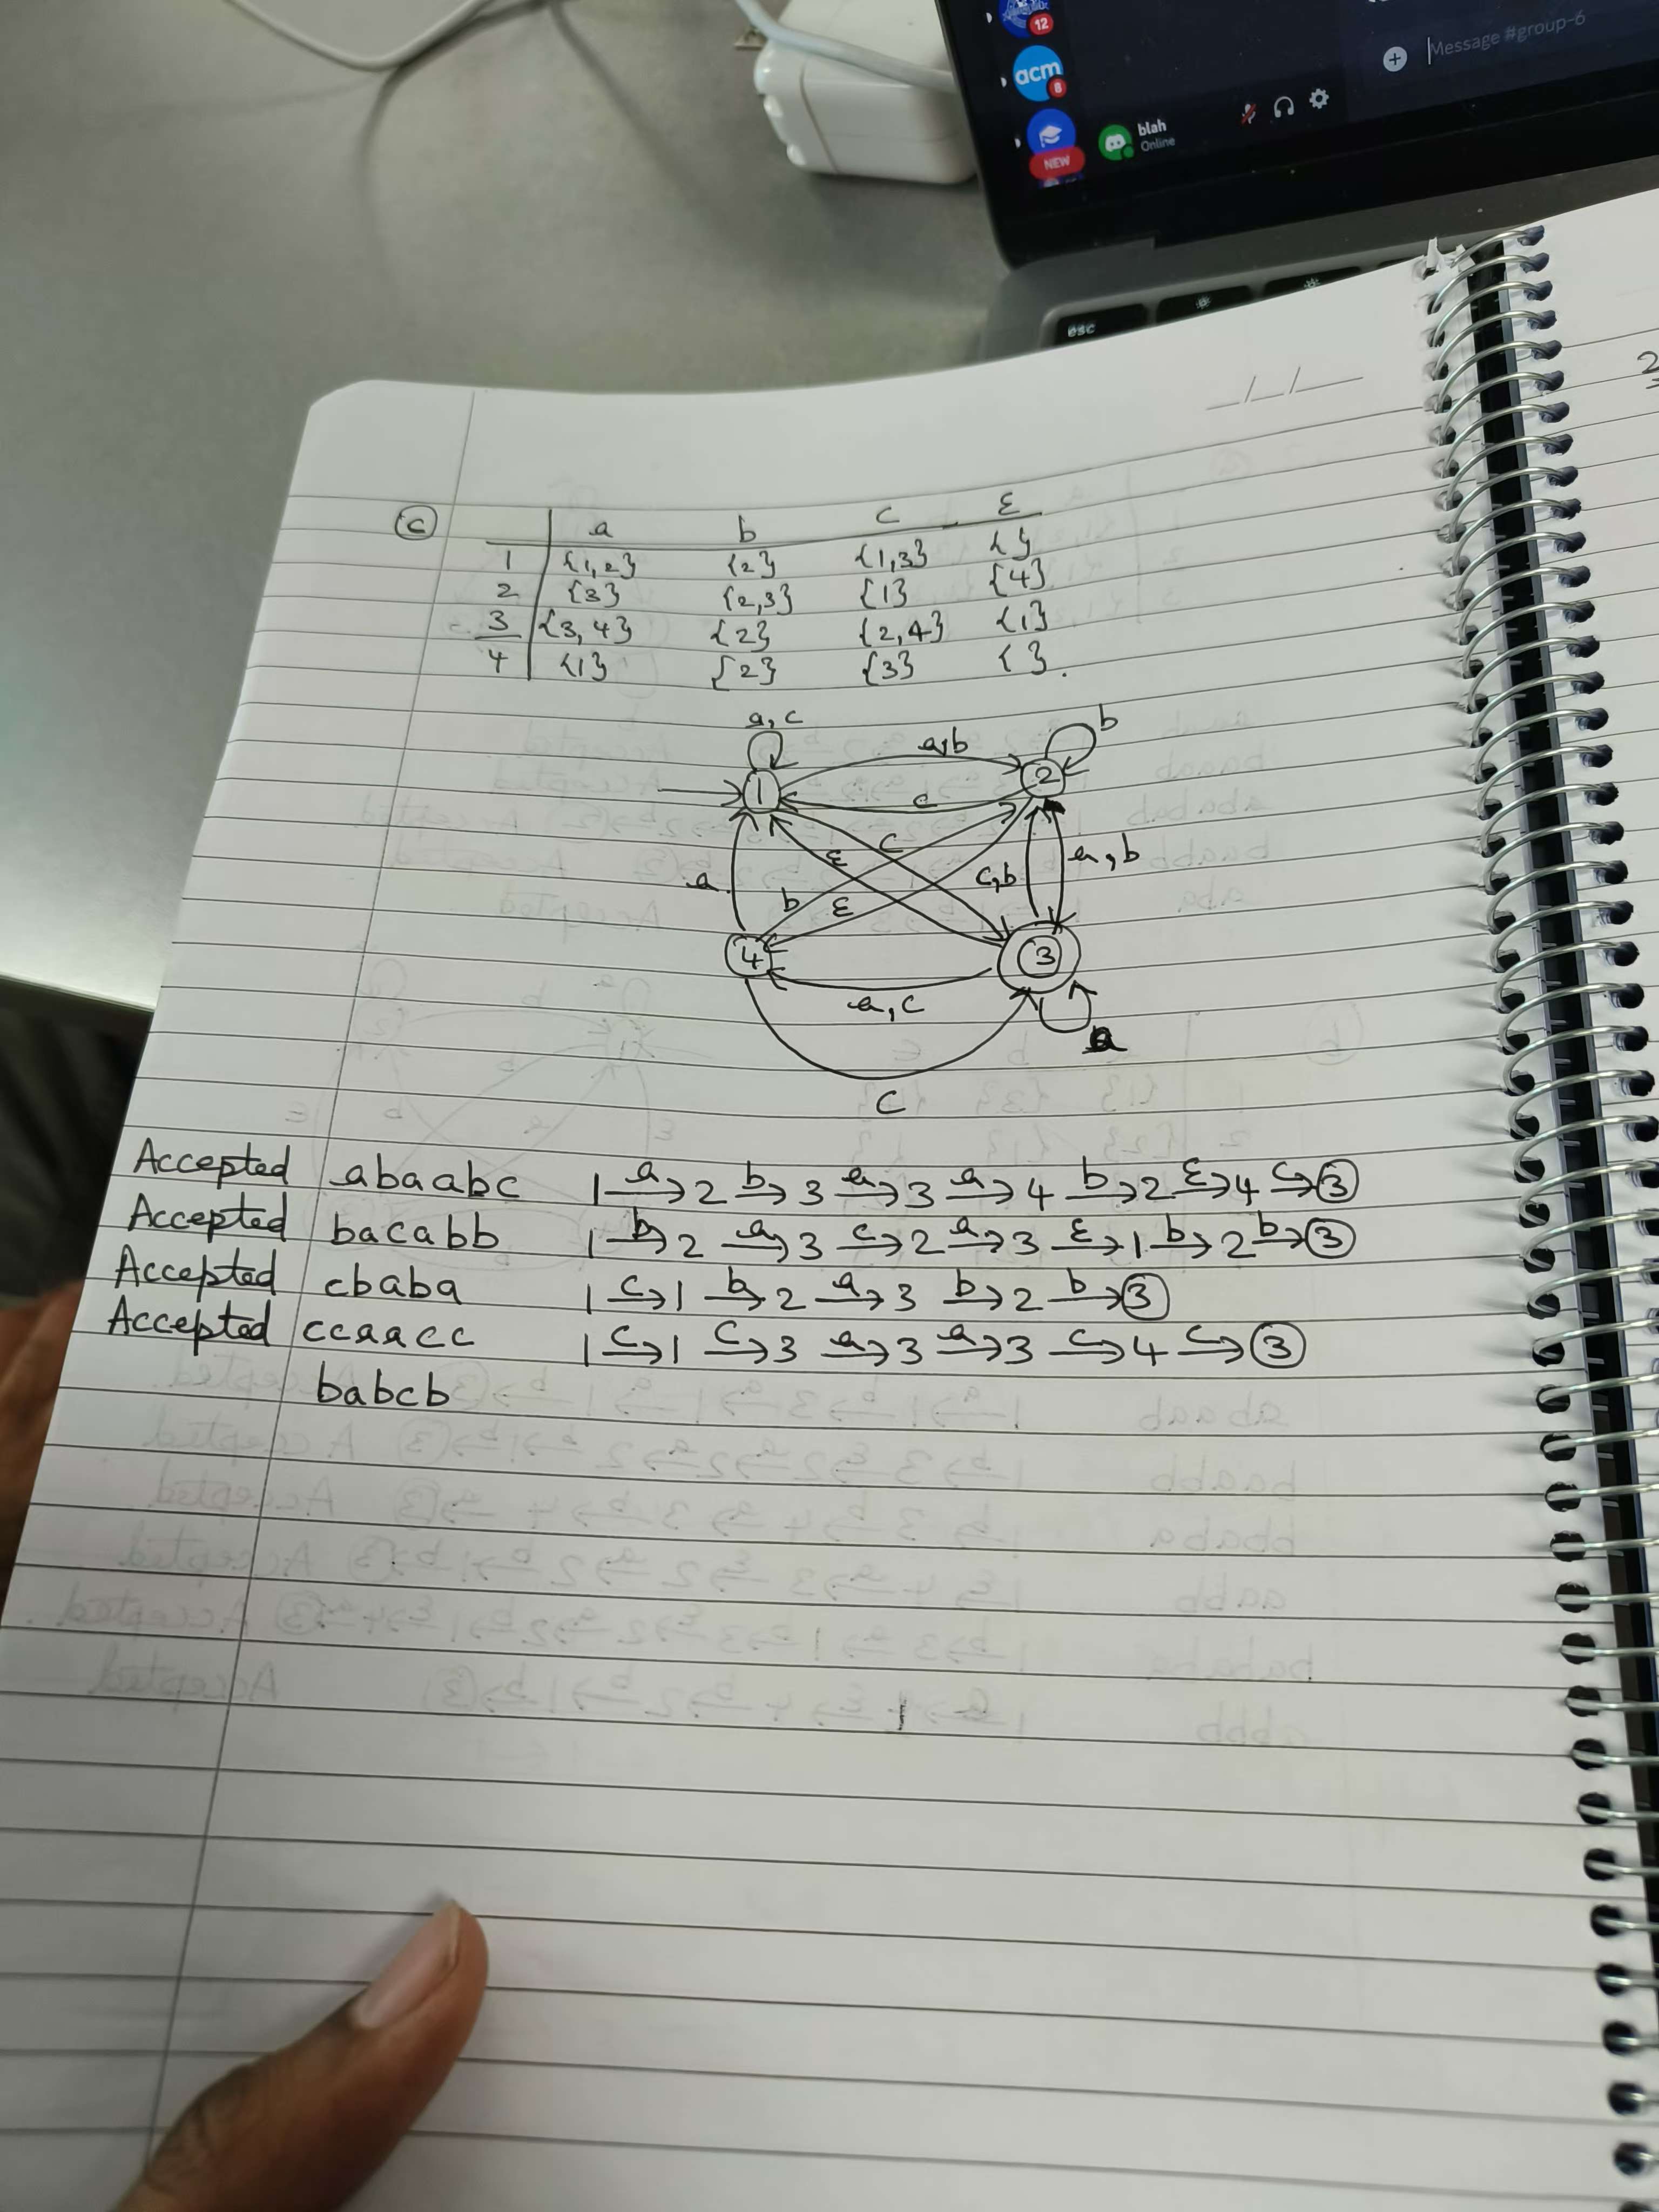 12
acm
8
NEW
blah
Online
Message #group-6
esc
_/_/__
2
c
a b c ε
1 {1,2} {2} {1,3} { }
2 {3} {2,3} {1} {4}
3 {3,4} {2} {2,4} {1}
4 {1} {2} {3} { }.
a, c
b
a,b
1
2
c
c
ε
a
c,b
a, b
b
ε
4
3
a, c
a
C
Accepted abaabc 1 a→ 2 b→ 3 a→ 3 a→ 4 b→ 2 ε→ 4 c→ 3
Accepted bacabb 1 b→ 2 a→ 3 c→ 2 a→ 3 ε→ 1 b→ 2 b→ 3
Accepted cbaba 1 c→ 1 b→ 2 a→ 3 b→ 2 b→ 3
Accepted ccaacc 1 c→ 1 c→ 3 a→ 3 a→ 3 c→ 4 c→ 3
babcb